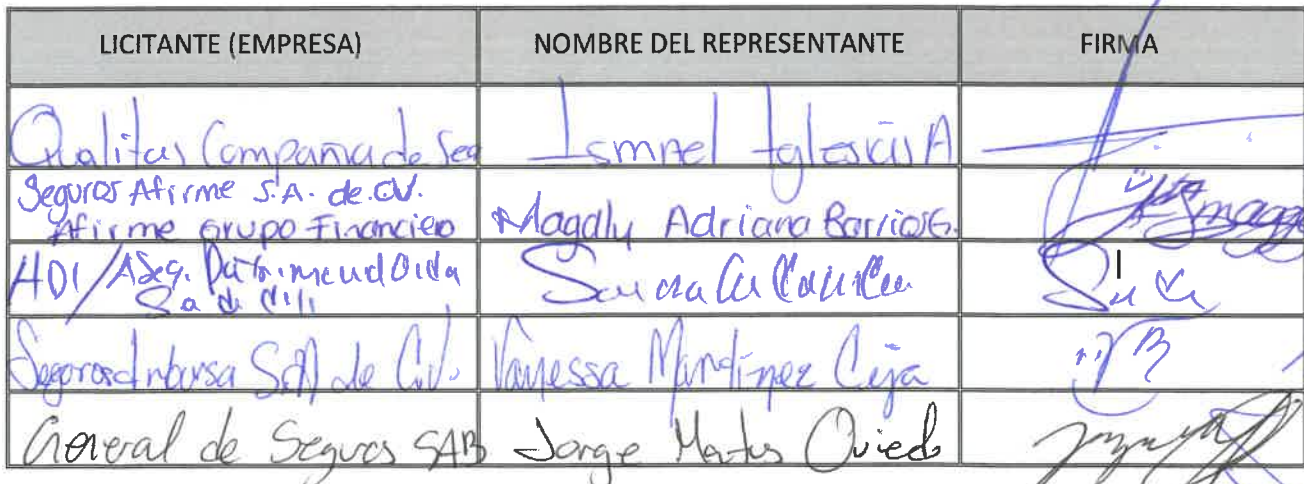 LICITANTE (EMPRESA) NOMBRE DEL REPRESENTANTE FIRMA
Qualitas Compañia de Seg Ismael Iglesias A
Seguros Afirme S.A. de CV.
Afirme Grupo Financiero Magally Adriana Barrios G.
HDI / Aseg.
Sa de C.V.
Seguros Inbursa SA de C.V. Vanessa Martinez Ceja
General de Seguros SAB Jorge Matus Oviedo